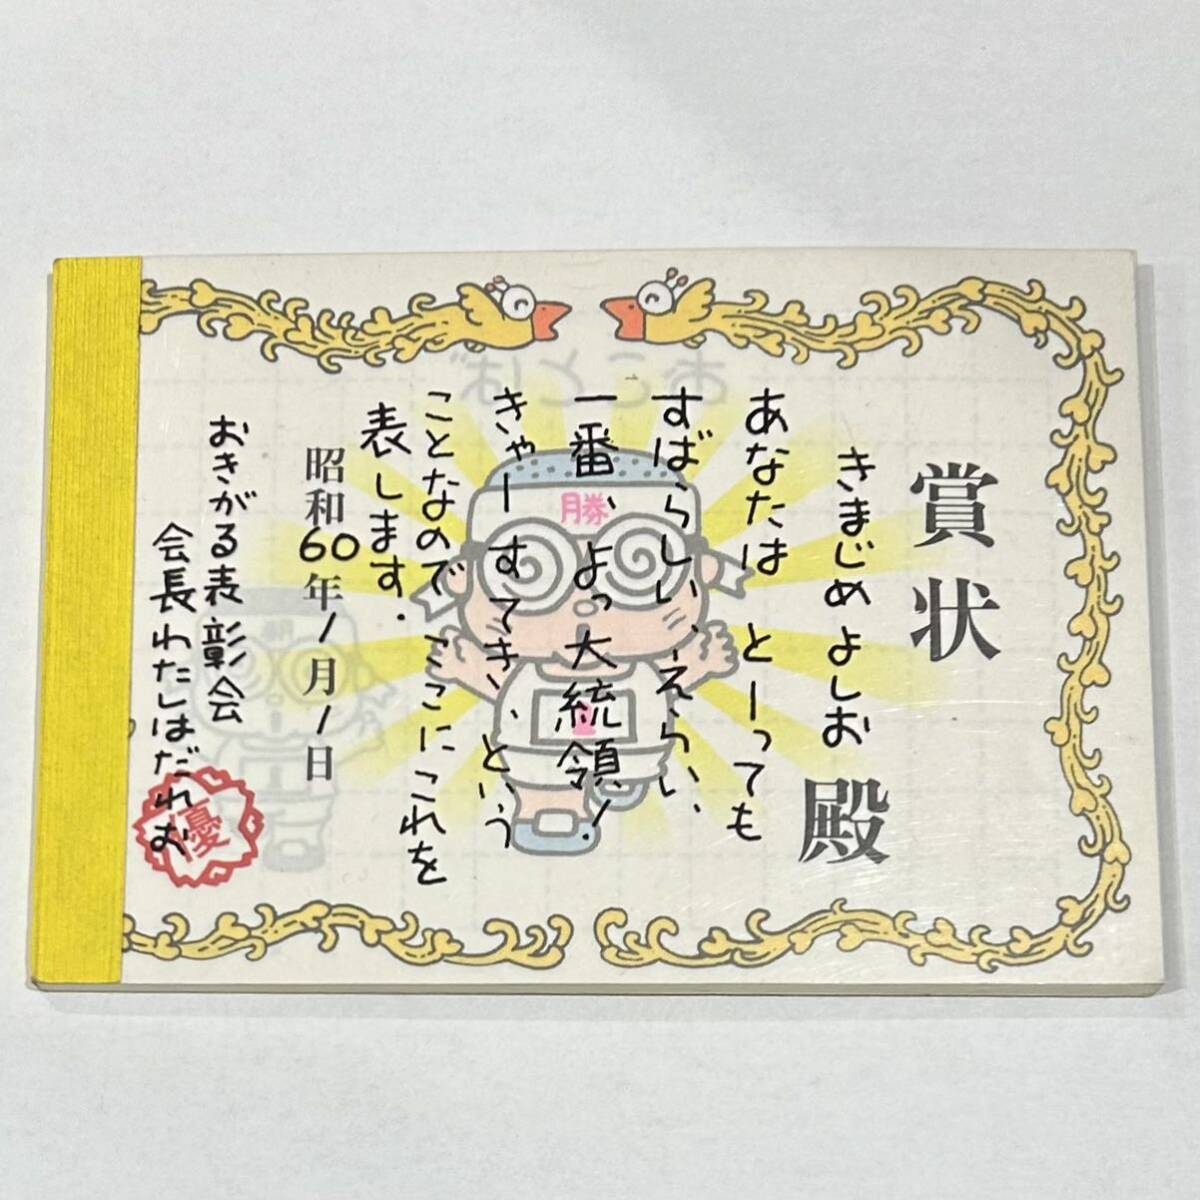 賞状
きまじめよしお 殿
あなたは とーっても
すばらしい、えらい、
一番、よっ大統領!
きゃーすてき、という
ことなので ここにこれを
表します.
昭和60年1月1日
おきがる表彰会
会長わたしはだれお
優
勝
おとらま